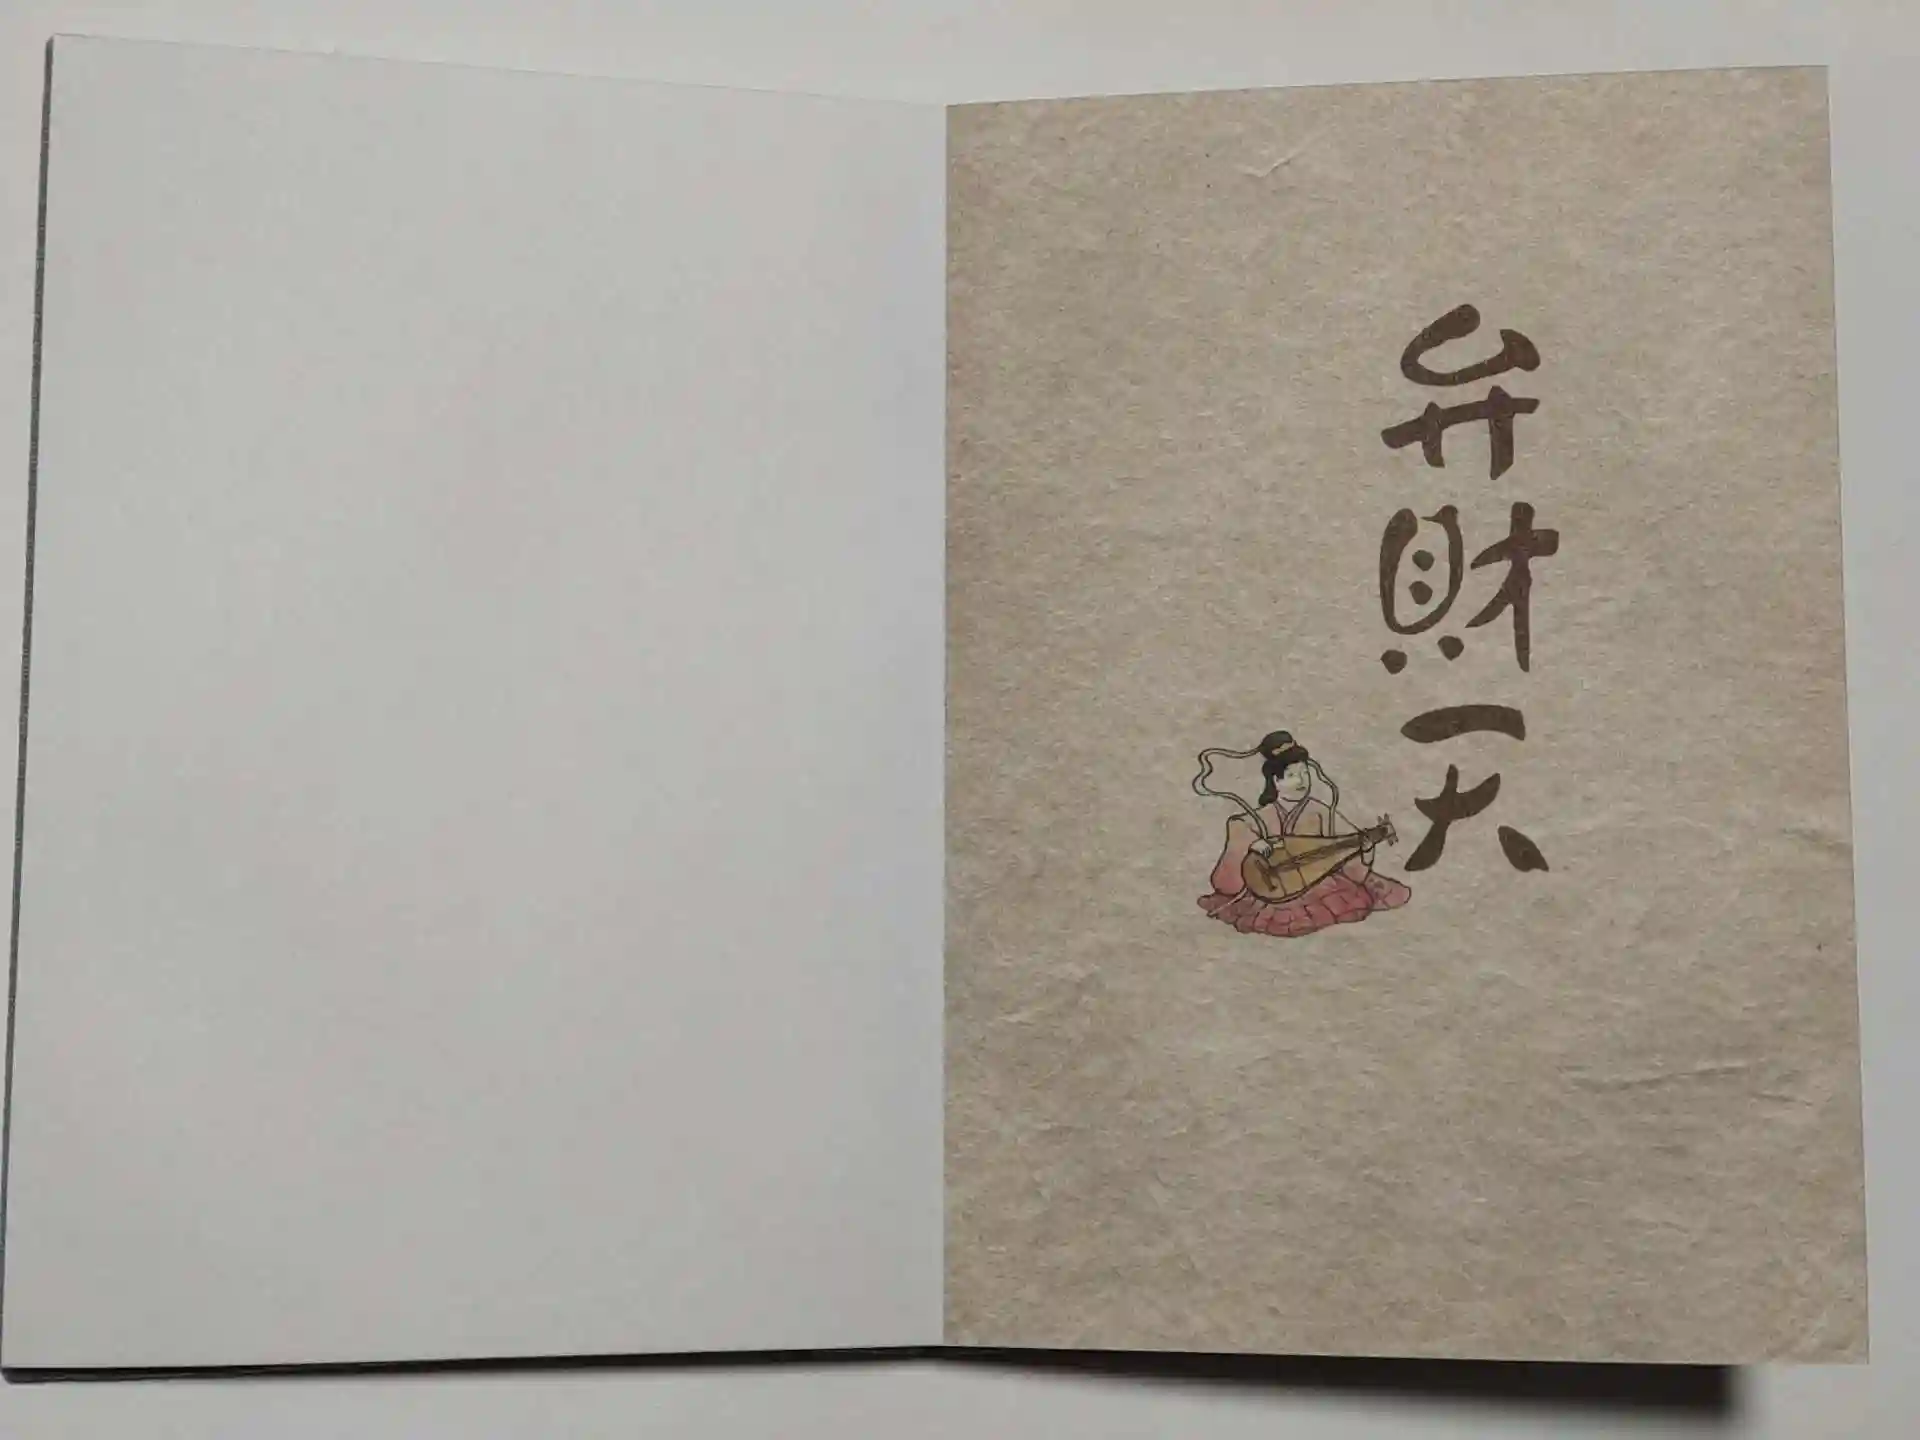 弁財天